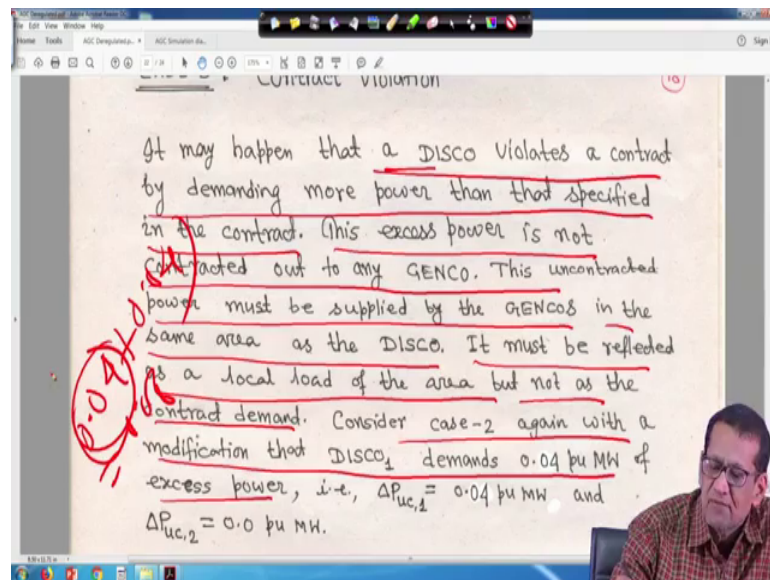 AGC Deregulated.pdf - Adobe Acrobat Reader DC
File Edit View Window Help
Home Tools AGC Deregulated.p... × AGC Simulation dia... Sign
22 / 24 175%
Case-3 : Contract Violation
18
It may happen that a DISCO violates a contract
by demanding more power than that specified
in the contract. This excess power is not
contracted out to any GENCO. This uncontracted
power must be supplied by the GENCOS in the
same area as the DISCO. It must be reflected
as a local load of the area but not as the
contract demand. Consider case-2 again with a
modification that DISCO₁ demands 0.04 pu MW of
excess power, i.e, ΔP_uc,1 = 0.04 pu MW and
ΔP_uc,2 = 0.0 pu MW.
0.04 + 0.04
8.50 x 11.71 in